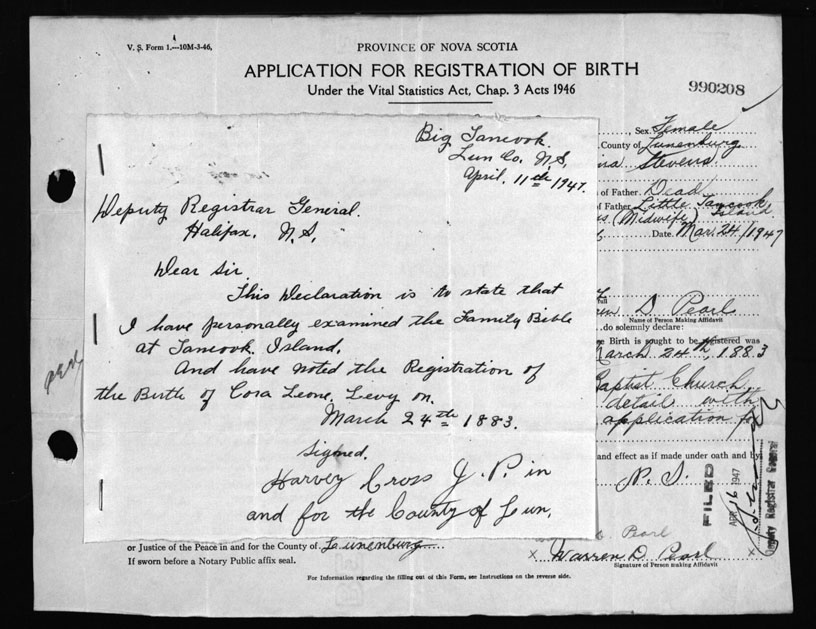 V. S. Form 1.—10M-3-46.
4
PROVINCE OF NOVA SCOTIA
APPLICATION FOR REGISTRATION OF BIRTH
Under the Vital Statistics Act, Chap. 3 Acts 1946
990208
Big Tancook.
Lun Co. N.S.
April. 11th 1947.
Deputy Registrar General.
Halifax. N.S.
Dear Sir
This Declaration is to state that
I have personally examined the Family Bible
at Tancook Island.
And have noted the Registration of
the Birth of Cora Leone Levy on.
March 24th 1883.
Signed.
Harvey Cross J. P. in
and for the County of Lun.
, Sex Female
County of Lunenburg
Stevens
of Father. Dead
of Father Little Tancook
Island
(Midwife)
Date. Mar. 24/1947
D Pearl
Name of Person Making Affidavit
do solemnly declare:
Birth is sought to be registered was
March 24th, 1883
Baptist Church
detail with
application for
and effect as if made under oath and by
N. S.
FILED
APR 16 1947
Deputy Registrar General
Pearl
or Justice of the Peace in and for the County of Lunenburg
x Warren D Pearl x
If sworn before a Notary Public affix seal.
Signature of Person making Affidavit
For Information regarding the filling out of this Form, see Instructions on the reverse side.